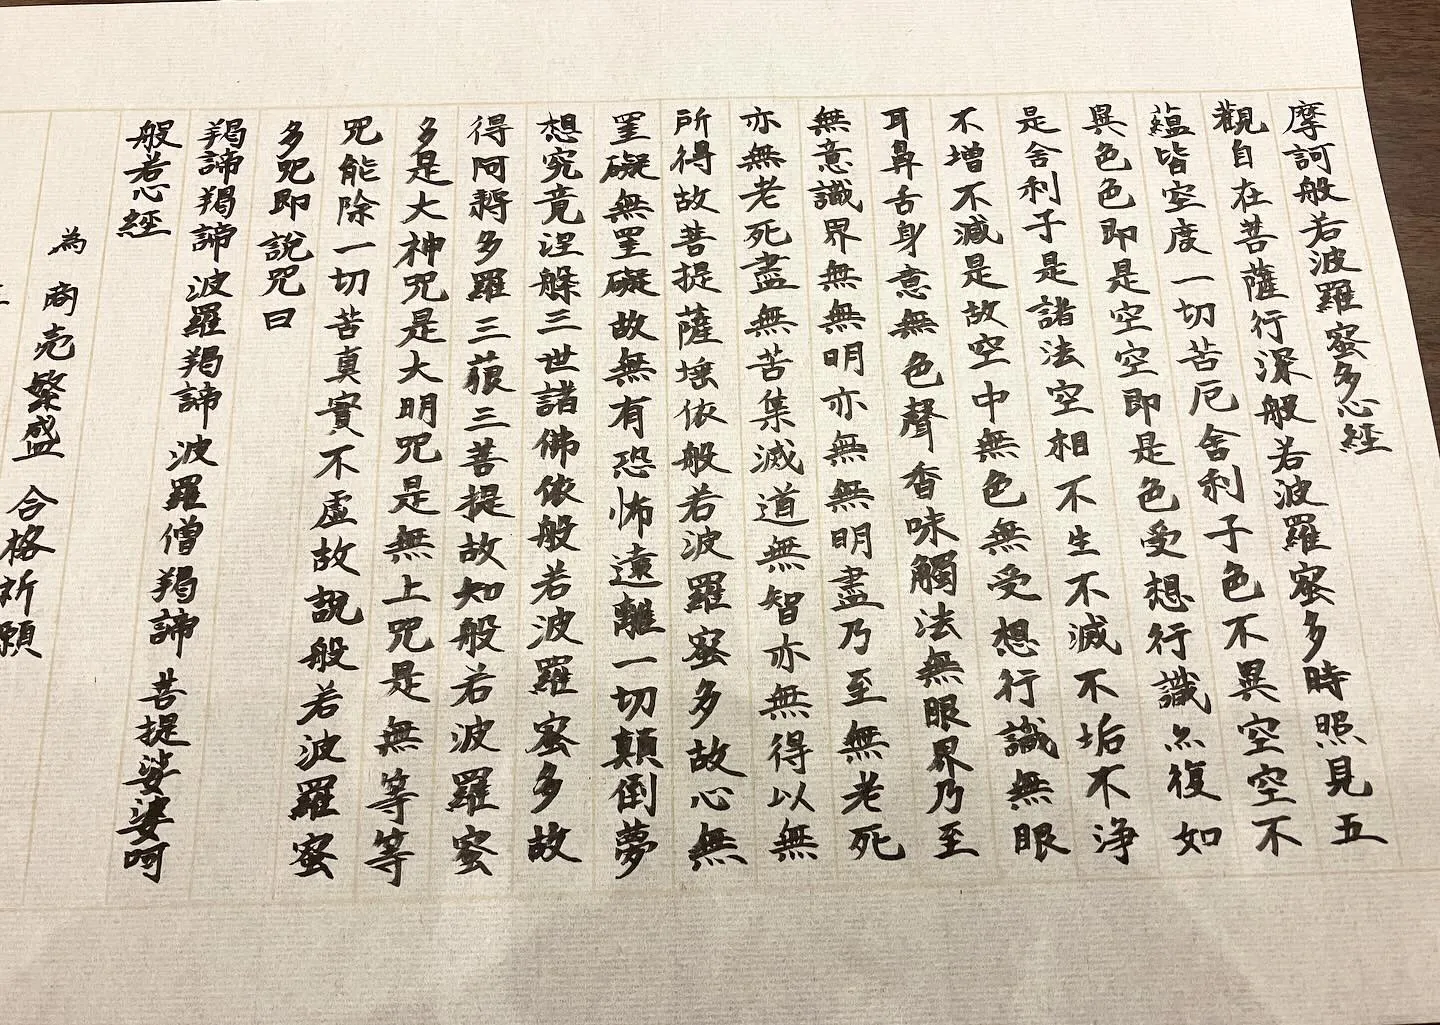 摩訶般若波羅蜜多心經
觀自在菩薩行深般若波羅蜜多時照見五
蘊皆空度一切苦厄舍利子色不異空空不
異色色即是空空即是色受想行識亦復如
是舍利子是諸法空相不生不滅不垢不浄
不増不減是故空中無色無受想行識無眼
耳鼻舌身意無色聲香味觸法無眼界乃至
無意識界無無明亦無無明盡乃至無老死
亦無老死盡無苦集滅道無智亦無得以無
所得故菩提薩埵依般若波羅蜜多故心無
罣礙無罣礙故無有恐怖遠離一切顛倒夢
想究竟涅槃三世諸佛依般若波羅蜜多故
得阿耨多羅三藐三菩提故知般若波羅蜜
多是大神咒是大明咒是無上咒是無等等
咒能除一切苦真實不虛故說般若波羅蜜
多咒即說咒曰
羯諦羯諦波羅羯諦波羅僧羯諦菩提娑婆呵
般若心經
為商売繁盛 合格祈願